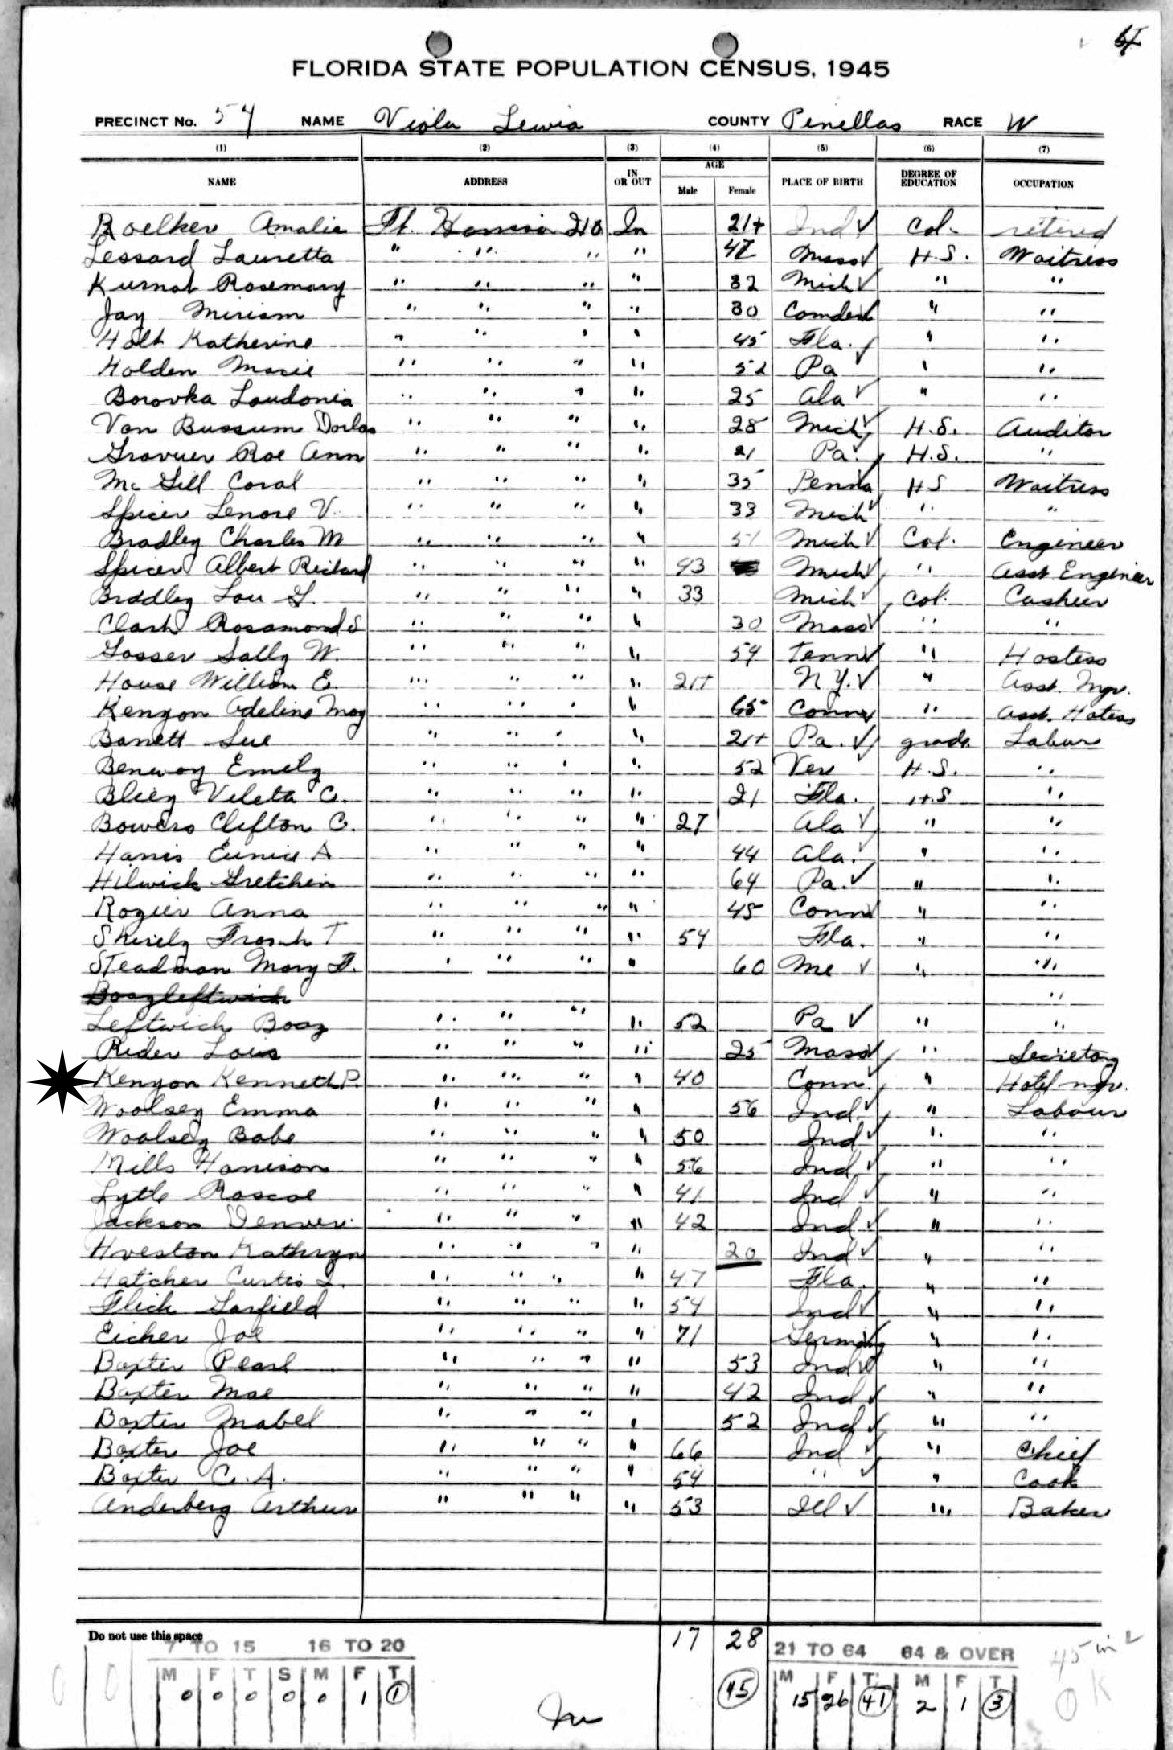 FLORIDA STATE POPULATION CENSUS, 1945
PRECINCT No. 54 NAME Viola Lewis COUNTY Pinellas RACE W
(1) (2) (3) (4) (5) (6) (7)
NAME ADDRESS IN OR OUT AGE Male Female PLACE OF BIRTH DEGREE OF EDUCATION OCCUPATION
Boelker Amalie Ft. Harrison 210 In 21+ Ind ✓ Col. retired
Lessard Lauretta " " " " 47 Mass ✓ H.S. Waitress
Kurnat Rosemary " " " " 32 Mich ✓ " "
Jay Miriam " " " " 30 " "
Holt Katherine " " " " 45 Fla. ✓ " "
Holden Marie " " " " 52 Pa ✓ " "
Borovka Loudonia " " " " 25 Ala ✓ " "
Van Bussum Dorlas " " " " 28 Mich ✓ H.S. Auditor
Roe Ann " " " " 21 Pa. ✓ H.S. "
Mc Gill Coral " " " " 35 Penna ✓ H S Waitress
Spicer Lenore V. " " " " 33 Mich ✓ " "
Bradley Charles M " " " " 51 Mich ✓ Col. Engineer
Spicer Albert Richard " " " " 43 Mich ✓ " Asst Engineer
Braddley Lou G. " " " " 33 Mich ✓ Col. Cashier
Clark Rosamond S " " " " 30 Mass ✓ " "
Gosser Sally W. " " " " 54 Tenn ✓ " Hostess
House William E. " " " " 21+ N.Y. ✓ " Asst. Mgr.
Kenyon Adeline May " " " " 65 Conn ✓ " Asst. Hotess
Barrett Sue " " " " 21+ Pa ✓ grade Labor
Benway Emely " " " " 52 Ver H.S. "
Bliey Veleta C. " " " " 21 Fla. H.S "
Bowers Clifton C. " " " " 27 Ala ✓ " "
Harris Eunice A " " " " 44 Ala. ✓ " "
Hilwick Gretchen " " " " 64 Pa. ✓ " "
Rogier Anna " " " " 45 Conn ✓ " "
Shirely Frank T " " " " 54 Fla. " "
Steadman Mary F. " " " " 60 Me ✓ " "
Boazleftwich "
Leftwich Boaz " " " " 52 Pa ✓ " "
Rider Lois " " " " 25 Mass ✓ " Secretary
Kenyon Kenneth P. " " " " 40 Conn. ✓ " Hotel mgr.
Woolsey Emma " " " " 56 Ind ✓ " Labour
Woolsey Babe " " " " 50 Ind ✓ " "
Mills Harrison " " " " 56 Ind ✓ " "
Lytle Roscoe " " " " 41 Ind ✓ " "
Jackson Denver " " " " 42 Ind ✓ " "
Hveston Kathryn " " " " 20 Ind ✓ " "
Hatcher Curtis L. " " " " 47 Fla. " "
Flick Garfield " " " " 54 Ind ✓ " "
Eicher Joe " " " " 71 Germany ✓ " "
Baxter Pearl " " " " 53 Ind ✓ " "
Baxter Mae " " " " 42 Ind ✓ " "
Baxter Mabel " " " " 52 Ind ✓ " "
Baxter Joe " " " " 66 Ind ✓ " Chief
Baxter C. A. " " " " 54 " ✓ " Cook
Anderberg Arthur " " " " 53 Ill ✓ " Baker
Do not use this space 17 28
7 TO 15 16 TO 20 21 TO 64 64 & OVER
M F T S M F T 45 M F T M F T
0 0 0 0 0 1 1 15 26 41 2 1 3
In
OK